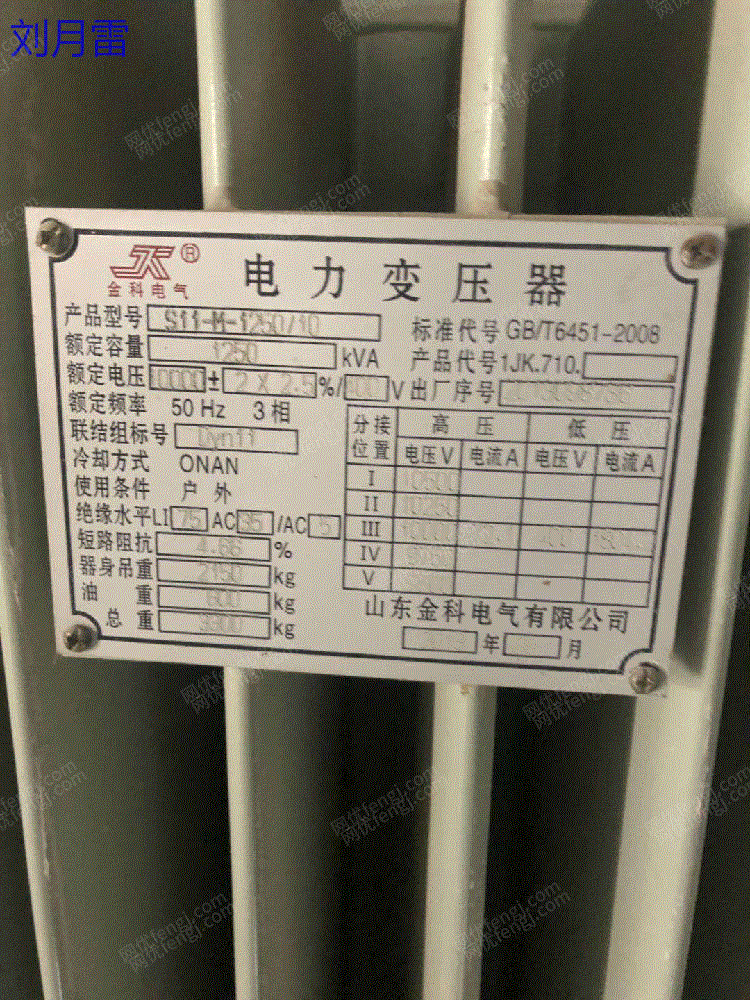 刘月雷
JK®
金科电气
电力变压器
产品型号 S11-M-1250/10
标准代号 GB/T6451-2008
额定容量 1250 kVA
产品代号 1JK.710.
额定电压 10000 ± 2×2.5 %/400 V
出厂序号
额定频率 50 Hz 3相
联结组标号 Dyn11
冷却方式 ONAN
使用条件 户外
绝缘水平 LI 75 AC 35 /AC 5
短路阻抗 4.66 %
器身吊重 2150 kg
油重 600 kg
总重 3300 kg
分接位置 高压 低压
电压V 电流A 电压V 电流A
I 10500
II 10250
III 10000
IV
V
山东金科电气有限公司
年 月
网优fengj.com